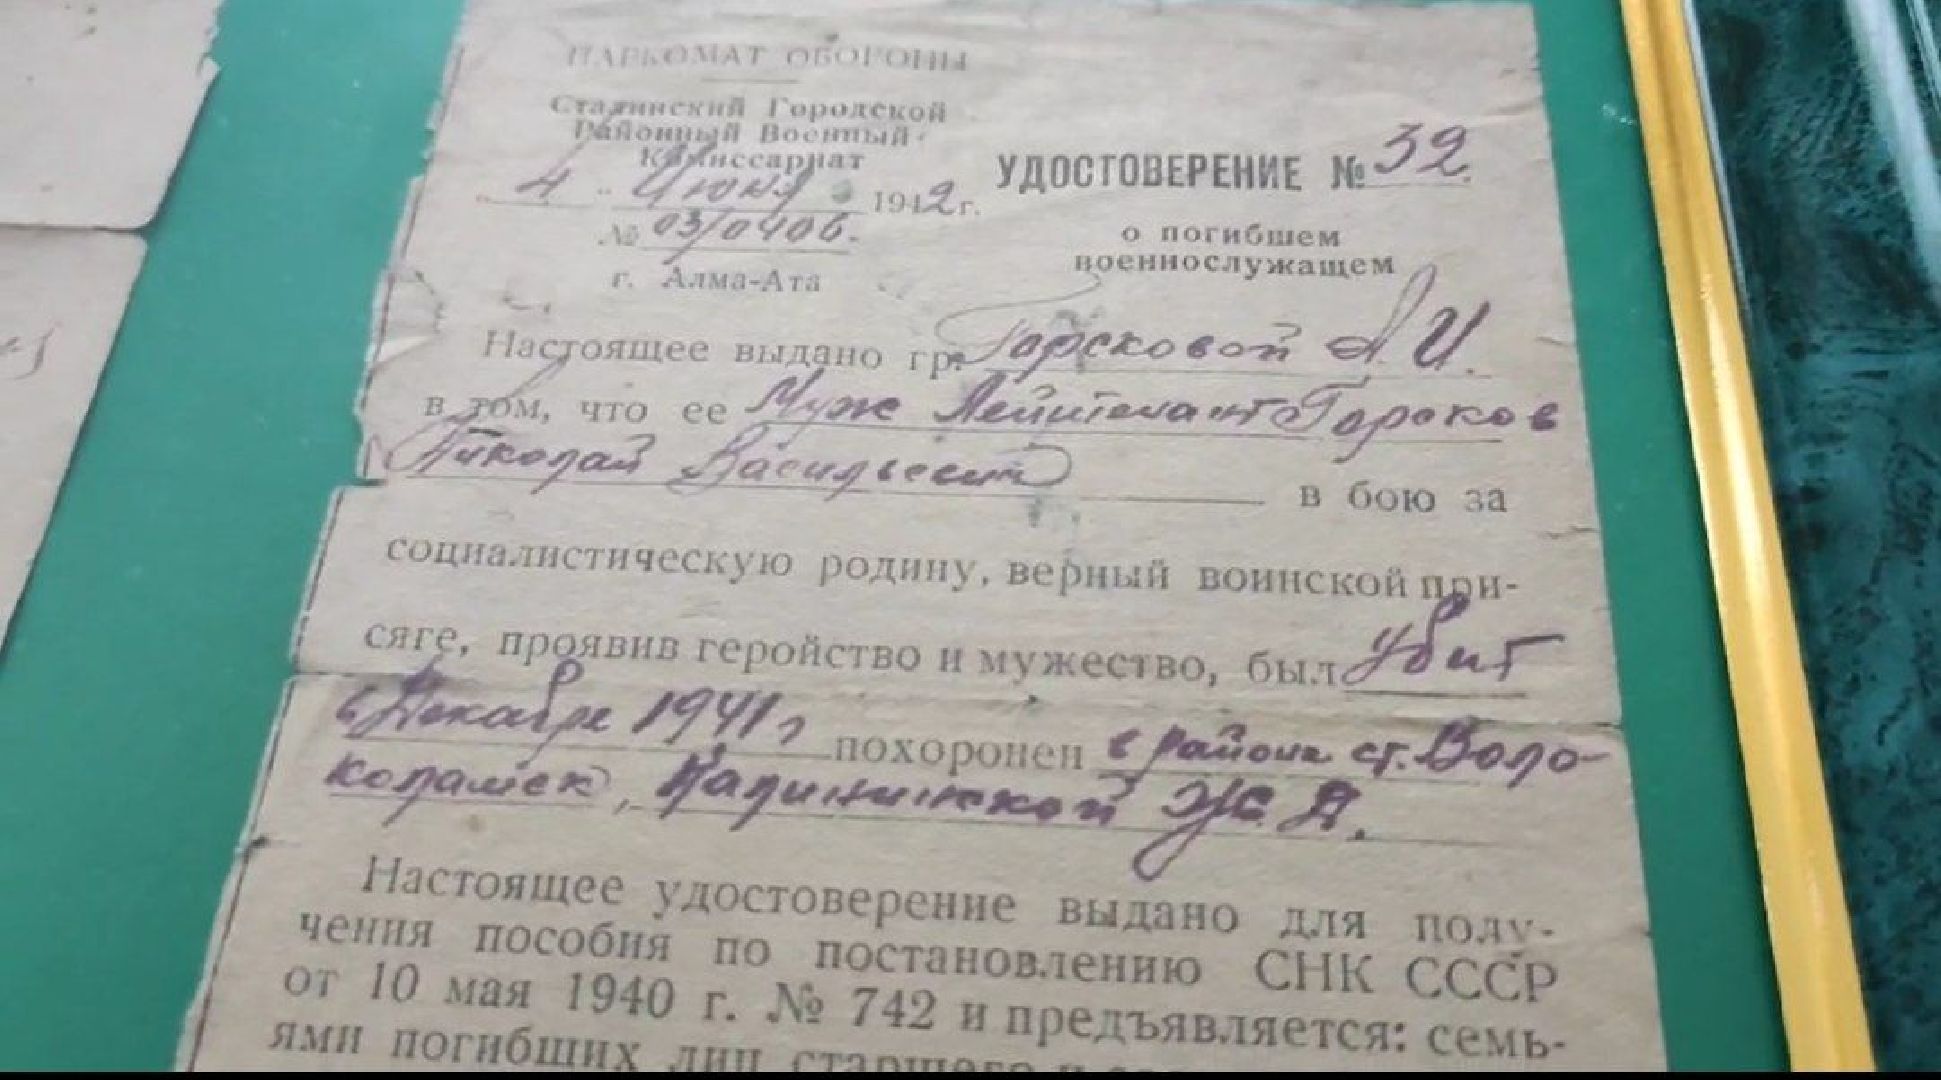 НАРКОМАТ ОБОРОНЫ
Сталинский Городской
Районный Военный
Комиссариат
„4" Июня 1942 г.
№ 03/0406.
г. Алма-Ата
УДОСТОВЕРЕНИЕ № 32.
о погибшем
военнослужащем
Настоящее выдано гр. Горсковой А. И.
в том, что ее Муж Лейтенант Горсков
Николай Васильевич в бою за
социалистическую родину, верный воинской при-
сяге, проявив геройство и мужество, был убит
в Декабре 1941 г похоронен в районе ст. Воло-
коламск, Калининской Ж. Д.
Настоящее удостоверение выдано для полу-
чения пособия по постановлению СНК СССР
от 10 мая 1940 г. № 742 и предъявляется: семь-
ями погибших лиц старшего и